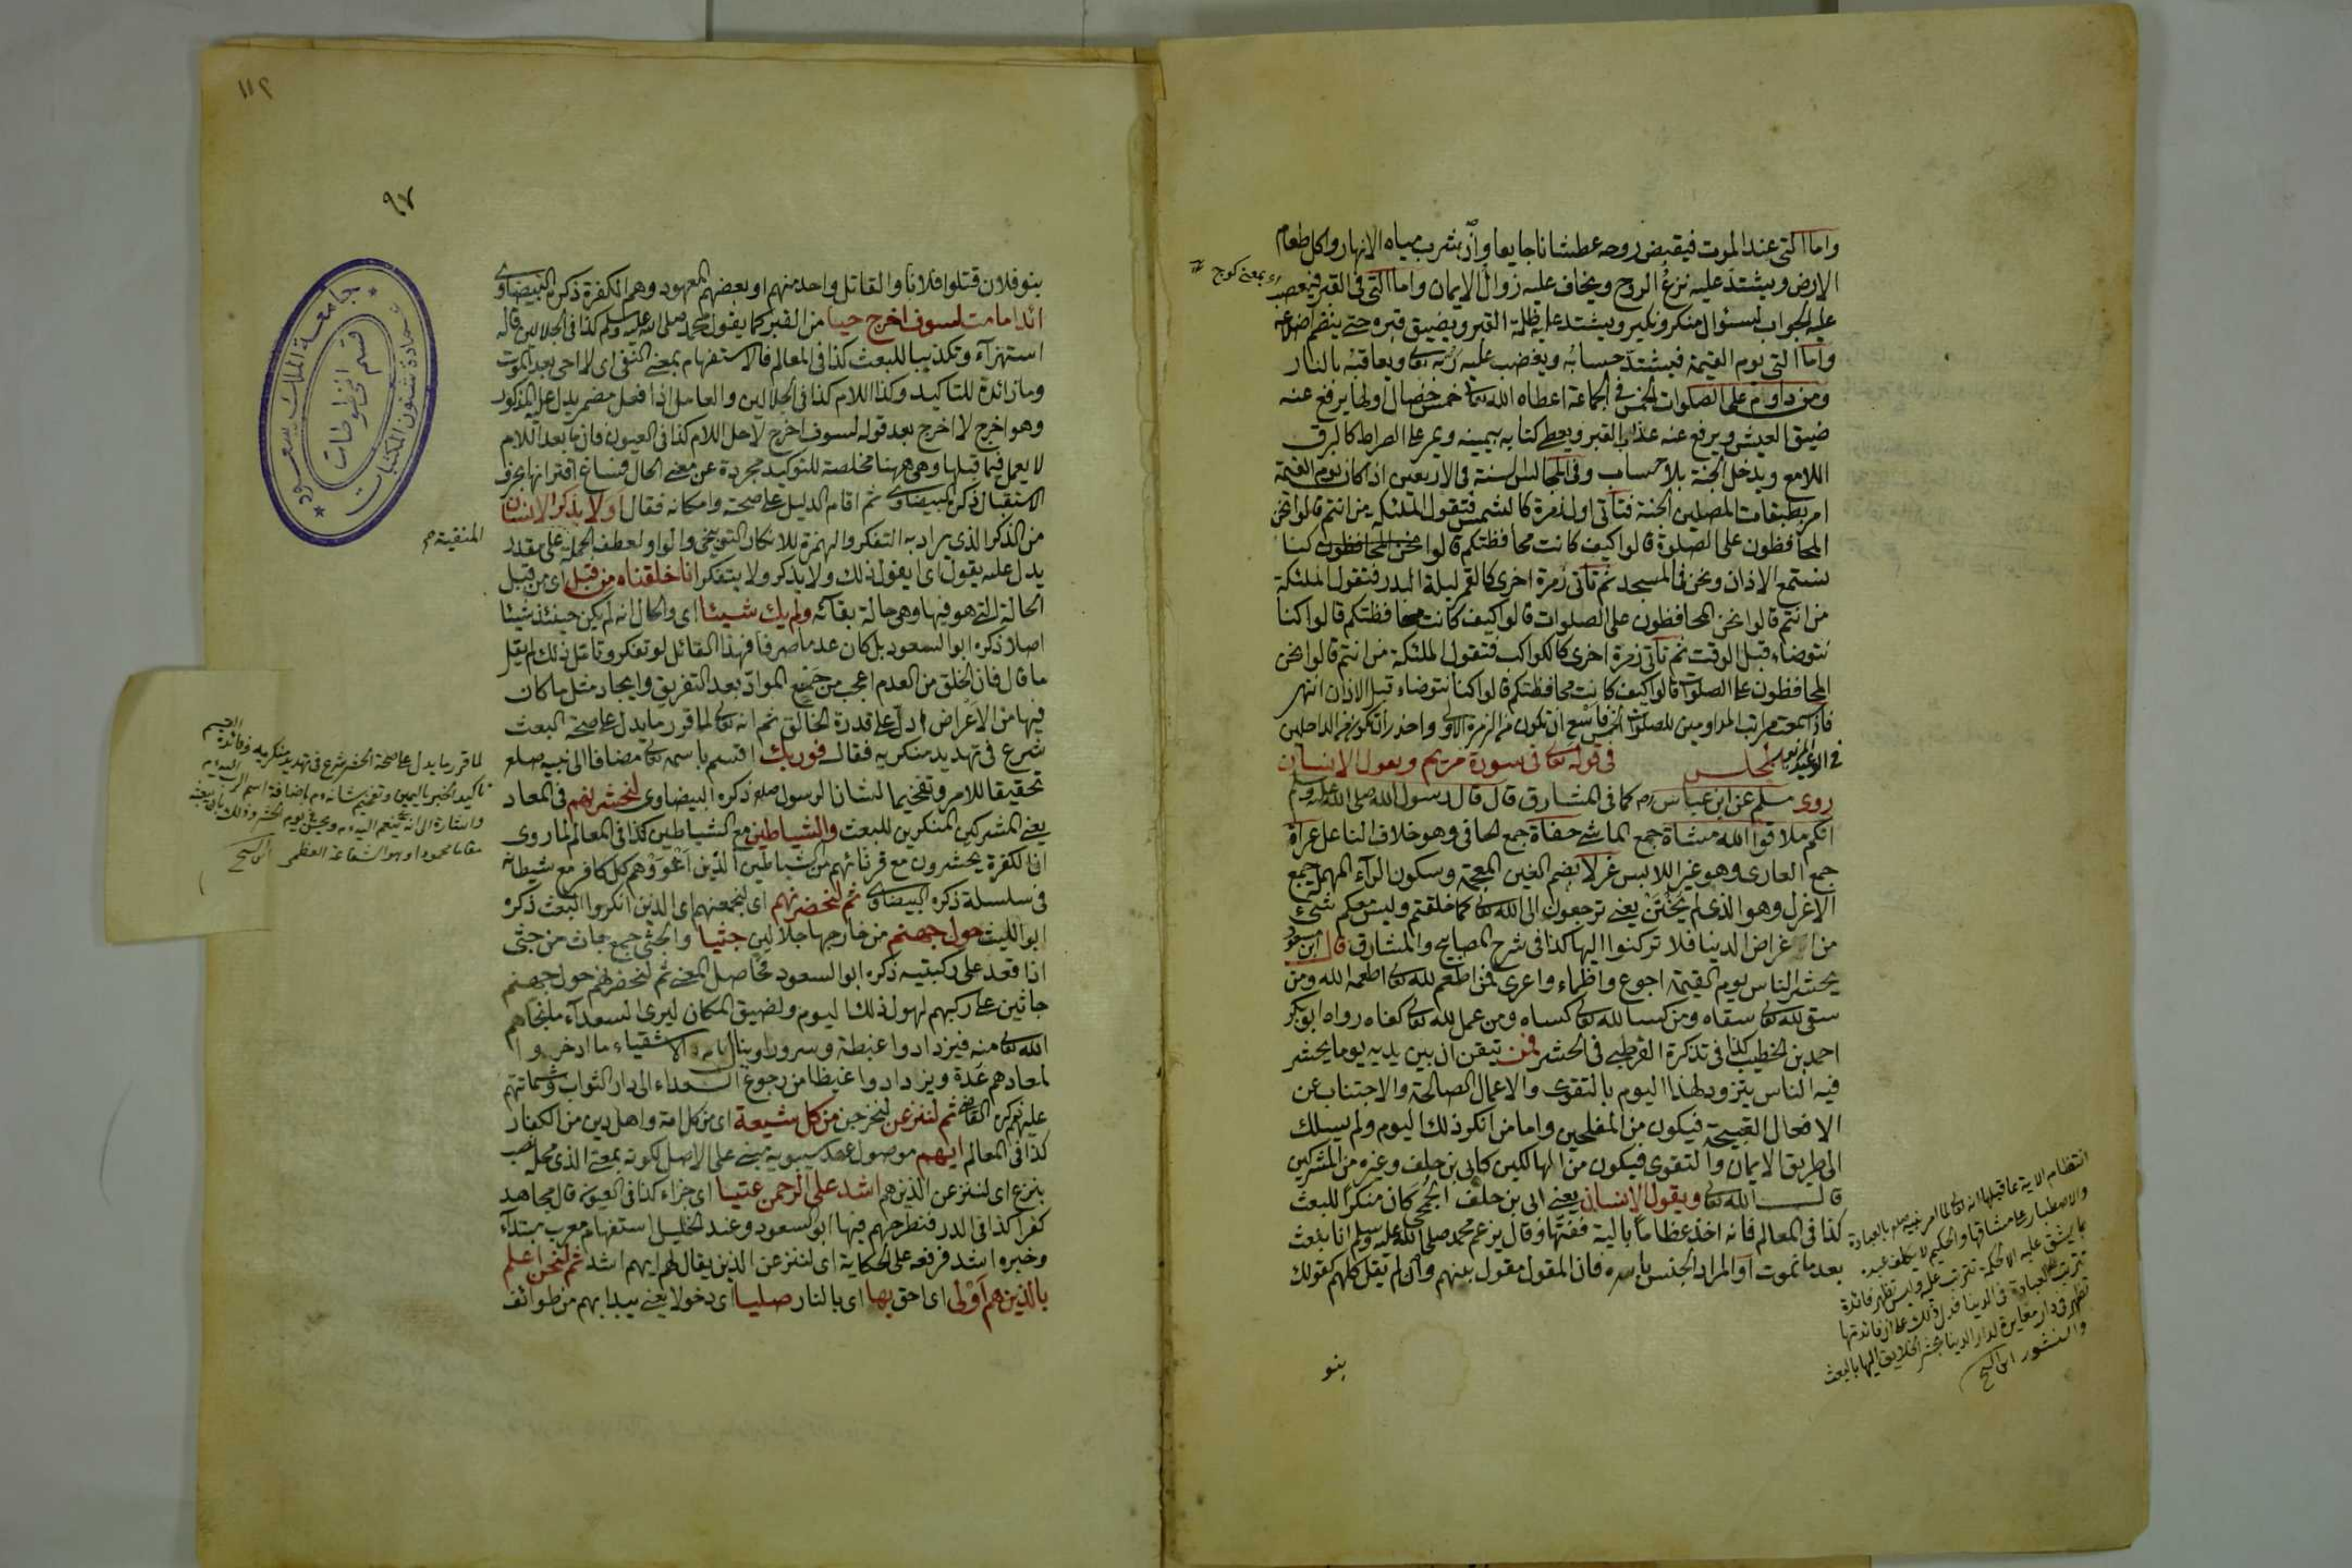 واما التى عند الموت فيقبض روحه عطشانا جايعا وان بشرب مياه الانهار واكل طعام
الارض ويشتد عليه نزع الروح ويخاف عليه زوال الايمان واما التى فى القبر فيعصب
عليه الجواب لسئوال منكر ونكير ويشتد عليه ظلمة القبر ويضيق قبره حتى ينضم اضلاعه
واما التى يوم القيمة فيشتد حسابه ويغضب عليه ربه تعالى ويعاقبه بالنار
ومن داوام على الصلوات الخمس فى الجماعة اعطاه الله تعالى خمس خصال اولها يرفع عنه
ضيق العيش ويرفع عنه عذاب القبر ويعطى كتابه بيمينه ويمر على الصراط كالبرق
اللامع ويدخل الجنة بلا حساب وفى المجالس السنة فى الاربعين اذا كان يوم القيمة
امر بطبقات المصلين الجنة فتأتى اول زمرة كالشمس فتقول الملئكة من انتم قالوا نحن
المحافظون على الصلوة قالوا كيف كانت محافظتكم قالوا نحن المحافظون كنا
نستمع الاذان ونحن فى المسجد ثم تأتى زمرة اخرى كالقمر ليلة البدر فتقول الملئكة
من انتم قالوا نحن المحافظون على الصلوات قالوا كيف كانت محافظتكم قالوا كنا
نتوضاء قبل الوقت ثم تأتى زمرة اخرى كالكواكب فتقول الملئكة من انتم قالوا نحن
المحافظون على الصلوات قالوا كيف كانت محافظتكم قالوا كنا نتوضاء قبل الاذان انتهى
فاذا سمعت مراتب المداومين للصلوات الخمس فاسع ان تكون من الزمرة الاولى واحذر ان تكون من الداخلين
فى الوعيد المزبور مجلس فى قوله تعالى فى سورة مريم ويقول الانسان
روى مسلم عن ابن عباس رض كما فى المشارق قال قال رسول الله صلى الله عليه وسلم
انكم ملاقوا الله مشاة جمع الماشى حفاة جمع الحافى وهو خلاف الناعل عراة
جمع العارى وهو غير اللابس غرلا بضم الغين المعجمة وسكون الرآء المهملة جمع
الاغرل وهو الذى لم يختتن يعنى ترجعون الى الله تعالى كما خلقتم وليس معكم شئ
من اغراض الدنيا فلا تركنوا اليها كذا فى شرح المصابيح والمشارق قال ابن مسعود
يحشر الناس يوم القيمة اجوع واظماء واعرى فمن اطعم لله تعالى اطعمه الله ومن
سقى لله تعالى سقاه ومن كسا لله تعالى كساه ومن عمل لله تعالى كفاه رواه ابو بكر
احمد بن الخطيب كذا فى تذكرة القرطبى فى الحشر فمن تيقن ان بين يديه يوما يحشر
فيه الناس يتزود لهذا اليوم بالتقوى والاعمال الصالحة والاجتناب عن
الافعال القبيحة فيكون من المفلحين واما من انكر ذلك اليوم ولم يسلك
الى طريق الايمان والتقوى فيكون من الهالكين كابى بن خلف وغيره من المشركين
قال الله تعالى ويقول الانسان يعنى ابى بن خلف الجمحى كان منكرا للبعث
كذا فى المعالم فانه اخذ عظاما بالية ففتها وقال يزعم محمد صلى الله عليه وسلم انا نبعث
بعد ما نموت او المراد الجنس باسره فان المقول مقول بينهم وان لم يقل كلهم كقولك
بنو
اى بمعنى كوج
انتظام الاية بما قبلها انه تعالى لما امر نبيه صلعم بالعبادة
والاصطبار على مشاقها والحكيم لا يكلف عبده
بما يشق عليه الا لحكمة تترتب عليه وليس تظهر فائدة
تترتب على العبادة فى الدينا فدل ذلك على ان فائدتها
تظهر فى دار مغايرة لدار الدينا يحشر الخلايق اليها بالبعث
والنشور
١١٢
٩٧
بنو فلان قتلوا فلانا والقاتل واحد منهم او بعضهم المعهود وهم الكفرة ذكره البيضاوى
ائذا ما مت لسوف اخرج حيا من القبر كما يقول محمد صلى الله عليه وسلم كذا فى الجلالين قاله
استهزآء وتكذيبا للبعث كذا فى المعالم فالاستفهام بمعنى النفى اى لا احى بعد الموت
وما زائدة للتاكيد وكذا اللام كذا فى الجلالين والعامل اذا فعل مضمر يدل عليه المذكور
وهو اخرج لا اخرج بعد قوله لسوف اخرج لاجل اللام كذا فى العيون فان ما بعد اللام
لا يعمل فيما قبلها وهى ههنا مخلصة للتوكيد مجردة عن معنى الحال فساغ اقترانها بحرف
الاستقبال ذكره البيضاوى ثم اقام الدليل على صحته وامكانه فقال اولا يذكر الانسان
من الذكر الذى يراد به التفكر والهمزة للانكار التوبيخى والواو لعطف الجملة على مقدر
يدل عليه يقول اى ايقول ذلك ولا يذكر ولا يتفكر انا خلقناه من قبل اى من قبل
الحالة التى هو فيها وهى حالة بقائه ولم يك شيئا اى والحال انه لم يكن حينئذ شيئا
اصلا ذكره ابو السعود بل كان عدما صرفا فهذا القائل لو تفكر وتأمل ذلك لم يقل
ما قال فان الخلق من العدم اعجب من جمع المواد بعد التفريق وايجاد مثل ما كان
فيها من الاعراض ادل على قدرة الخالق ثم انه تعالى لما قرر ما يدل على صحة البعث
شرع فى تهديد منكريه فقال فوربك اقسم باسمه تعالى مضافا الى نبيه صلعم
تحقيقا للامر وتفخيما لشان الرسول صلعم ذكره البيضاوى لنحشرنهم فى المعاد
يعنى المشركين المنكرين للبعث والشياطين مع الشياطين كذا فى المعالم لما روى
ان الكفرة يحشرون مع قرنائهم من الشياطين الذين اغووهم كل كافر مع شيطانه
فى سلسلة ذكره البيضاوى ثم لنحضرنهم اى لنجمعنهم اى الذين انكروا البعث ذكره
ابو الليث حول جهنم من خارجها جلالين جثيا والجثى جمع جاث من جثى
اذا قعد على ركبتيه ذكره ابو السعود فحاصل المعنى ثم لنحضرنهم حول جهنم
جاثين على ركبهم لهول ذلك اليوم ولضيق المكان ليرى السعدآء ما نجاهم
الله تعالى منه فيزدادوا غبطة وسرورا وينال الاشقياء ما ادخروا
لمعادهم عدة ويزدادوا غيظا من رجوع السعداء الى دار الثواب وشماتتهم
عليهم ذكره القاضى ثم لننزعن لنخرجن من كل شيعة اى من كل امة واهل دين من الكفار
كذا فى المعالم ايهم موصول عند سيبويه مبنى على الاصل لكونه بمعنى الذى محله نصب
بننزع اى لننزعن الذين هم اشد على الرحمن عتيا اى جراء كذا فى العيون قال مجاهد
كفرا كذا فى الدر فنطرحهم فيها ابو السعود وعند الخليل استفهام معرب مبتدآء
وخبره اشد فرفعه على الحكاية اى لننزعن الذين يقال لهم ايهم اشد ثم لنحن اعلم
بالذين هم اولى اى احق بها اى بالنار صليا اى دخولا يعنى يبدا بهم من طوائف
المنفية
لما قرر ما يدل على صحة الحشر شرع فى تهديد منكريه وفائدة القسم
تاكيد الخبر باليمين وتفخيم شانه م باضافة اسم الرب اليه م
واشارة الى انه
مقاما محمودا وهو الشفاعة العظمى
جامعة الملك سعود
عمادة شئون المكتبات
قسم المخطوطات